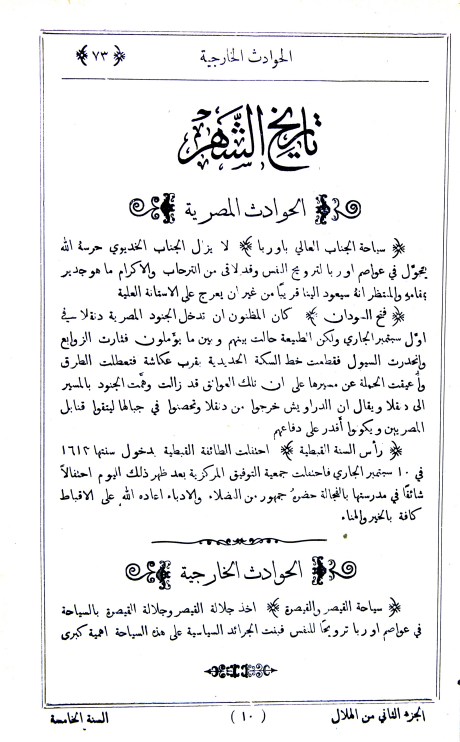 الحوادث الخارجية ﴿ ٧٣ ﴾
تاريخ الشهر
الحوادث المصرية
﴿ سياحة الجناب العالي باوربا ﴾ لا يزال الجناب الخديوي حرسهُ الله
يتجوّل في عواصم اوربا لترويح النفس وقد لاقى من الترحاب والاكرام ما هو جدير
بمقامهِ والمنتظر انهُ سيعود الينا قريبًا من غير ان يعرج على الاستانة العلية
﴿ فتح السودان ﴾ كان المظنون ان تدخل الجنود المصرية دنقلا في
اول سبتمبر الجاري ولكن الطبيعة حالت بينهم وبين ما يؤملون فثارت الزوابع
وانحدرت السيول فقطعت خط السكة الحديدية بقرب عكاشة فتعطلت الطرق
وأُعيقت الحملة عن مسيرها على ان تلك العوائق قد زالت وهمَّت الجنود بالمسير
الى دنقلا ويقال ان الدراويش خرجوا من دنقلا وتحصنوا في جبالها ليتقوا قنابل
المصريين ويكونوا أقدر على دفاعهم
﴿ رأس السنة القبطية ﴾ احتفلت الطائفة القبطية بدخول سنتها ١٦١٣
في ١٠ سبتمبر الجاري فاحتفلت جمعية التوفيق المركزية بعد ظهر ذلك اليوم احتفالاً
شائقًا في مدرستها بالفجالة حضرهُ جمهور من الفضلاء والادباء اعاده الله على الاقباط
كافة بالخير والهناء
الحوادث الخارجية
﴿ سياحة القيصر والقيصرة ﴾ اخذ جلالة القيصر وجلالة القيصرة بالسياحة
في عواصم اوربا ترويحًا للنفس فبنت الجرائد السياسية على هذه السياحة اهمية كبرى
الجزء الثاني من الهلال ( ١٠ ) السنة الخامسة